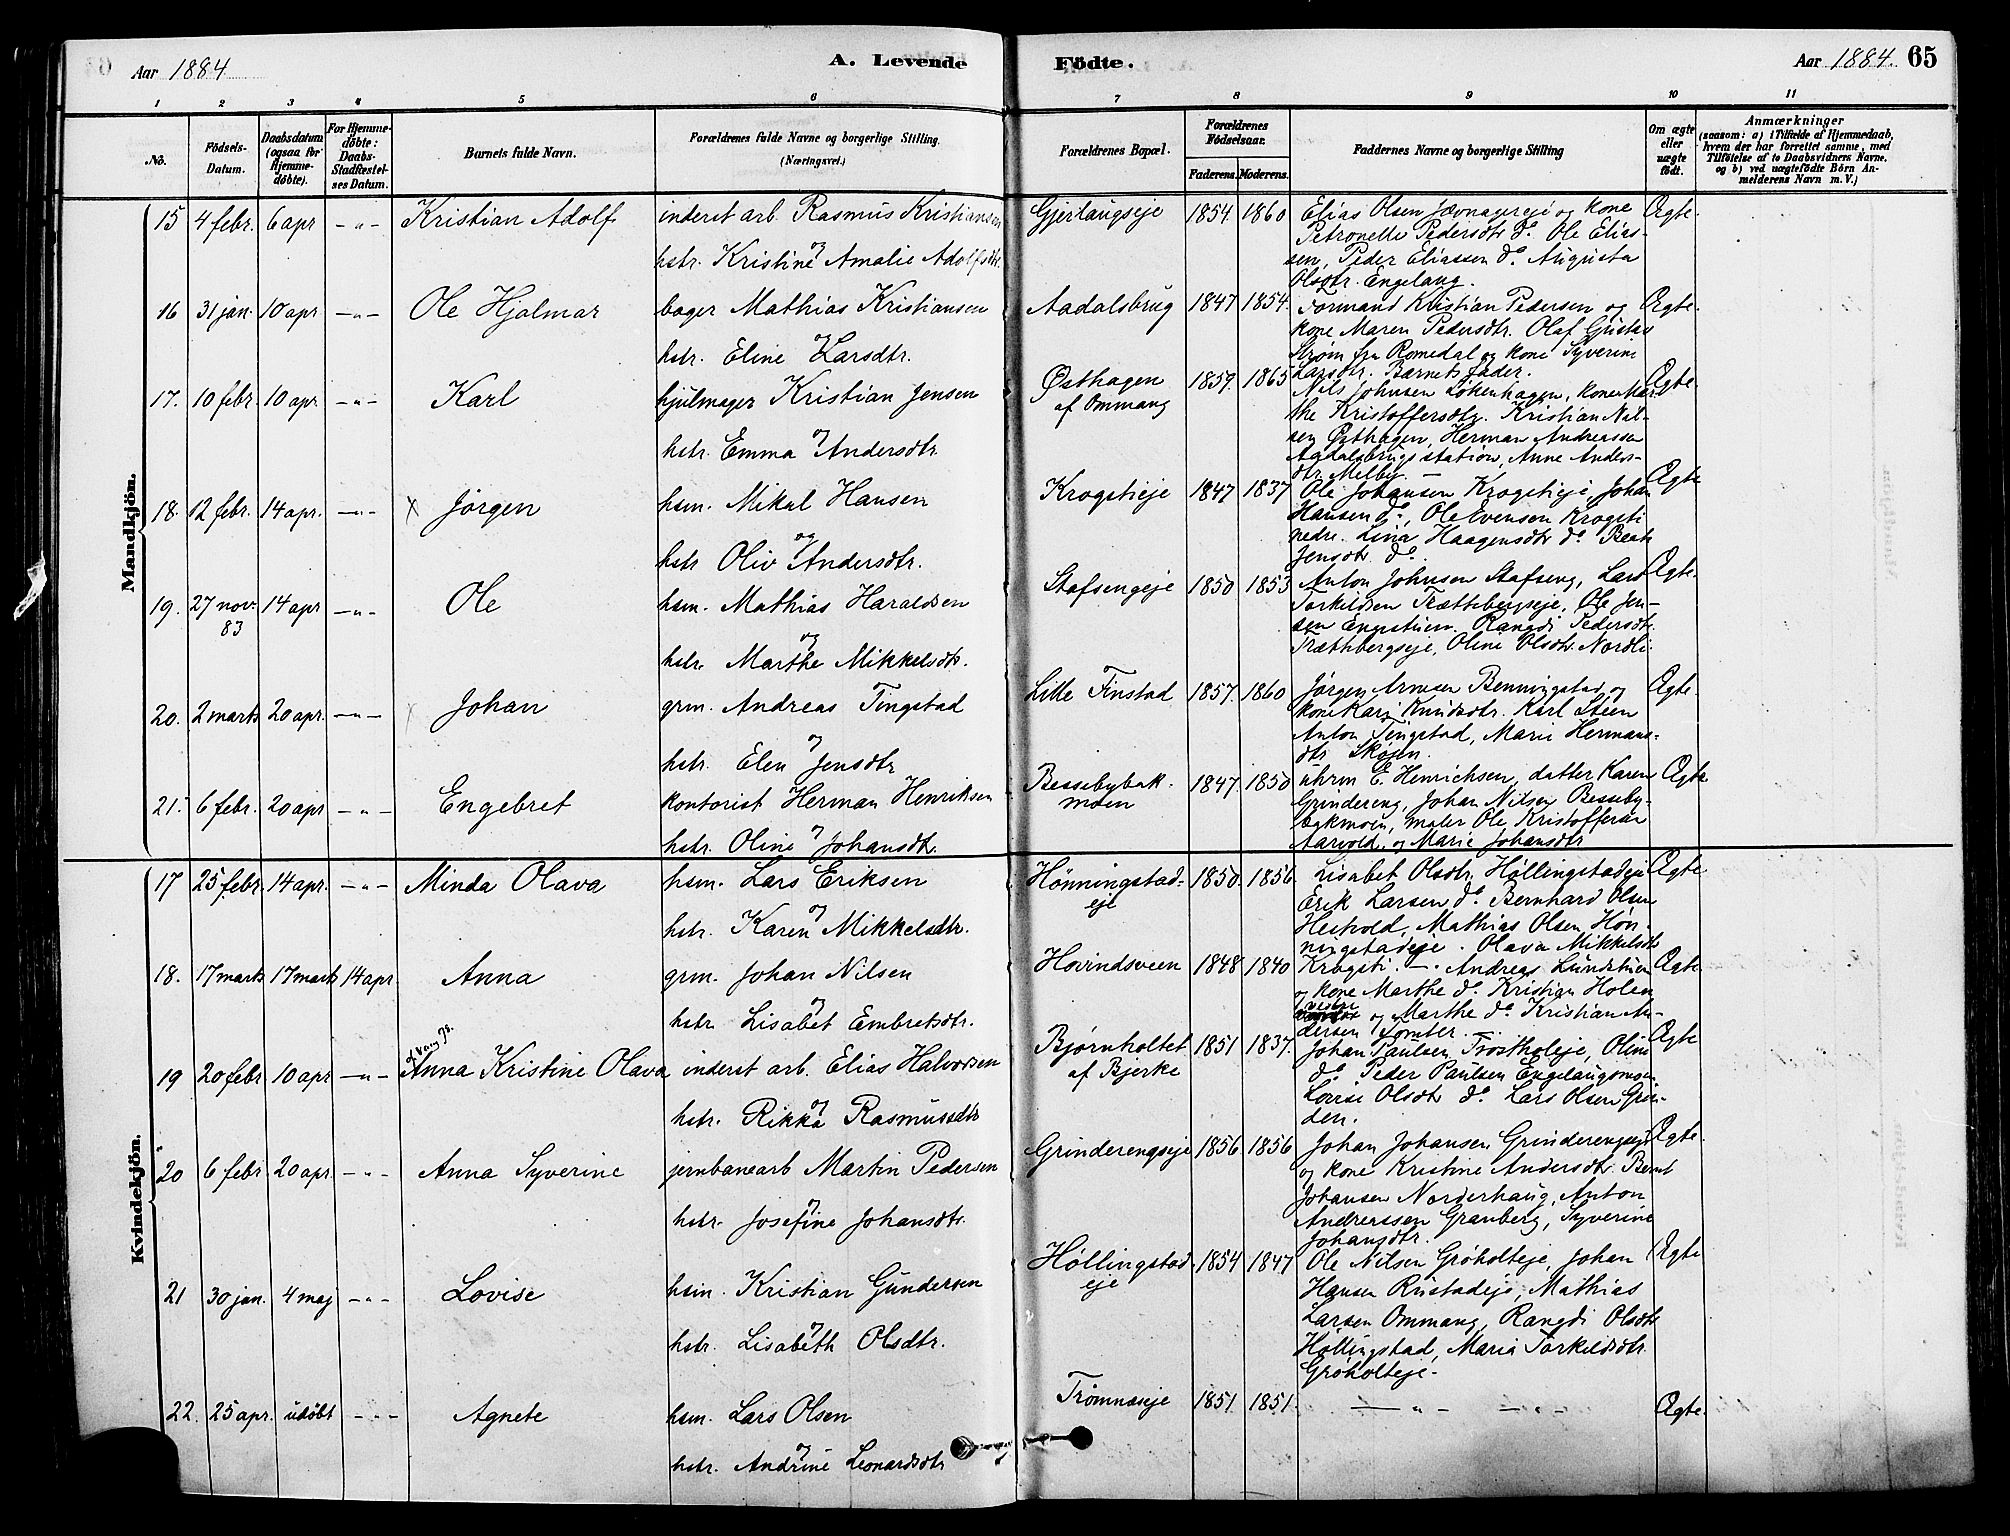 Aar 1884
A. Levende
Födte.
Aar 1884.
65
1 2 3 4 5 6 7 8 9 10 11
No.
Födsels-Datum.
Daabsdatum (ogsaa for Hjemmedöbte).
For Hjemmedöbte: Daabs-Stadfæstelses Datum.
Barnets fulde Navn.
Forældrenes fulde Navne og borgerlige Stilling. (Næringsvei.)
Forældrenes Bopæl.
Forældrenes Födselsaar.
Faderens. Moderens.
Faddernes Navne og borgerlige Stilling
Om ægte eller uægte født.
Anmærkninger
(saasom: a) i Tilfælde af Hjemmedaab, hvem der har forrettet samme, med Tilföielse af to Daabsvidners Navne, og b) ved uægtefödte Börn Anmelderens Navn m. V.)
Mandkjön.
15 4 febr. 6 apr -"- Kristian Adolf
inderst arb. Rasmus Kristiansen
og
hstr. Kristine Amalie Adolfsdtr.
Gjerlaugseje 1854. 1860
Elias Olsen Jevnagereje og kone
Petronelle Pedersdtr do. Ole Elias-
sen, Peder Eliassen do. Augusta
Olsdtr. Engelaug.
Ægte.
16 31 jan. 10 apr -"- Ole Hjalmar
bager Mathias Kristiansen
hstr. Eline Larsdtr.
Aadalsbrug 1847 1854.
Formand Kristian Pedersen og
kone Maren Pedersdtr. Olaf Gustav
Strøm fra Romedal og kone Syverine
Larsdtr. Barnets fader.
Ægte.
17. 10 febr. 10 apr. -"- Karl
hjulmager Kristian Jensen
og
hstr. Emma Andersdtr.
Østhagen
af Ommang
1859. 1865
Nils Johnsen Løkenhagen, kone Mar-
the Kristoffersdtr. Kristian Nil-
sen Østhagen, Herman Andreassen
Aadalsbrug station, Anne Anders-
dtr Melby.
Ægte.
18. 12 febr. 14 apr. -"- x Jörgen
hsm. Mikal Hansen
og
hstr Oliv Andersdtr.
Krogstieje 1847 1837
Ole Johansen Krogstieje, Johan
Hansen do, Ole Evensen Krogsti
nedre. Lina Haagensdtr do Beate
Jensdtr do
Ægte
19. 27 nov. 83 14 apr -"- Ole
hsm. Mathias Haraldsen
og
hstr Marthe Mikkelsdtr.
Stafsengeje 1850 1853
Anton Johnsen Stafseng, Lars
Torkildsen Trættebergseje, Ole Jen-
sen Engestuen. Rangdi Pedersdtr.
Trættebergseje, Oline Olsdtr. Nordli.
Ægte.
20. 2 marts 20 apr. -"- Johan
grm. Andreas Tingstad
og
hstr. Elen Jensdtr
Lille Finstad 1857. 1860
Jørgen Arnesen Benningstad og
kone Kari Knudsdtr. Karl Steen
Anton Tingstad, Marie Hermans-
dtr Skøien.
Ægte.
21. 6 febr. 20 apr -"- Engebret
kontorist Herman Henriksen
og
hstr. Oline Johansdtr.
Bessebybak-
moen
1847. 1850
uhrm E. Henrichsen, datter Karen
Grindereng, Johan Nilsen Besseby-
bakmoen, maler Ole Kristoffersen
Aarvold, og Marie Johansdtr
Ægte
Kvindekjön.
17 25 febr. 14 apr. -"- Minda Olava
hsm. Lars Eriksen
og
hstr. Karen Mikkelsdtr.
Hönningstad-
eje
1850. 1856.
Lisabet Olsdtr. Høllingstadeje
Erik Larsen do Bernhard Olsen
Hestvold, Mathias Olsen Høn-
ningstadeje. Olava Mikkelsdtr
Krogsti.
Ægte.
18. 17 marts 17 marts 14 apr. Anna
grm. Johan Nilsen
og
hstr Lisabet Embretsdtr.
Hovindsveen 1848 1840
Andreas Lundstuen
og kone Marthe do Kristian Holen
og Marthe do Kristian An-
dersen Tomter.
Ægte
19 20 febr 10 apr -"- Anna Kristine Olava
inderst arb. Elias Halvorsen
og
hstr. Rikka Rasmusdtr
Bjørnholtet
af Bjerke
1851 1837.
Johan Paulsen Frostholeje, Oline
do. Peder Paulsen Engelaugsmoen
Lovise Olsdtr do Lars Olsen Grin-
den.
Ægte
20 6 febr 20 apr. -"- Anna Syverine
jernbanearb Martin Pedersen
og
hstr. Josefine Johansdtr.
Grinderengseje 1856 1856
Johan Johansen Grinderengseje
og kone Kristine Andersdtr. Bernt
Johansen Norderhaug, Anton
Andreassen Granberg, Syverine
Johansdtr.
Ægte.
21 30 jan. 4 maj -"- Lovise
hsm. Kristian Gundersen
og
hstr. Lisabeth Olsdtr.
Höllingstad
eje
1854 1847
Ole Nilsen Grøholteje, Johan
Hansen Rustadeje, Mathias
Larsen Ommang, Rangdi Olsdtr
Höllingstad, Maria Torkildsdtr.
Grøholteje.
Ægte
22. 25 apr. udöbt -"- Agnete
hsm. Lars Olsen
og
hstr. Andrine Leonardsdtr
Trömnæseje 1851. 1851. -"- -"-
Ægte.